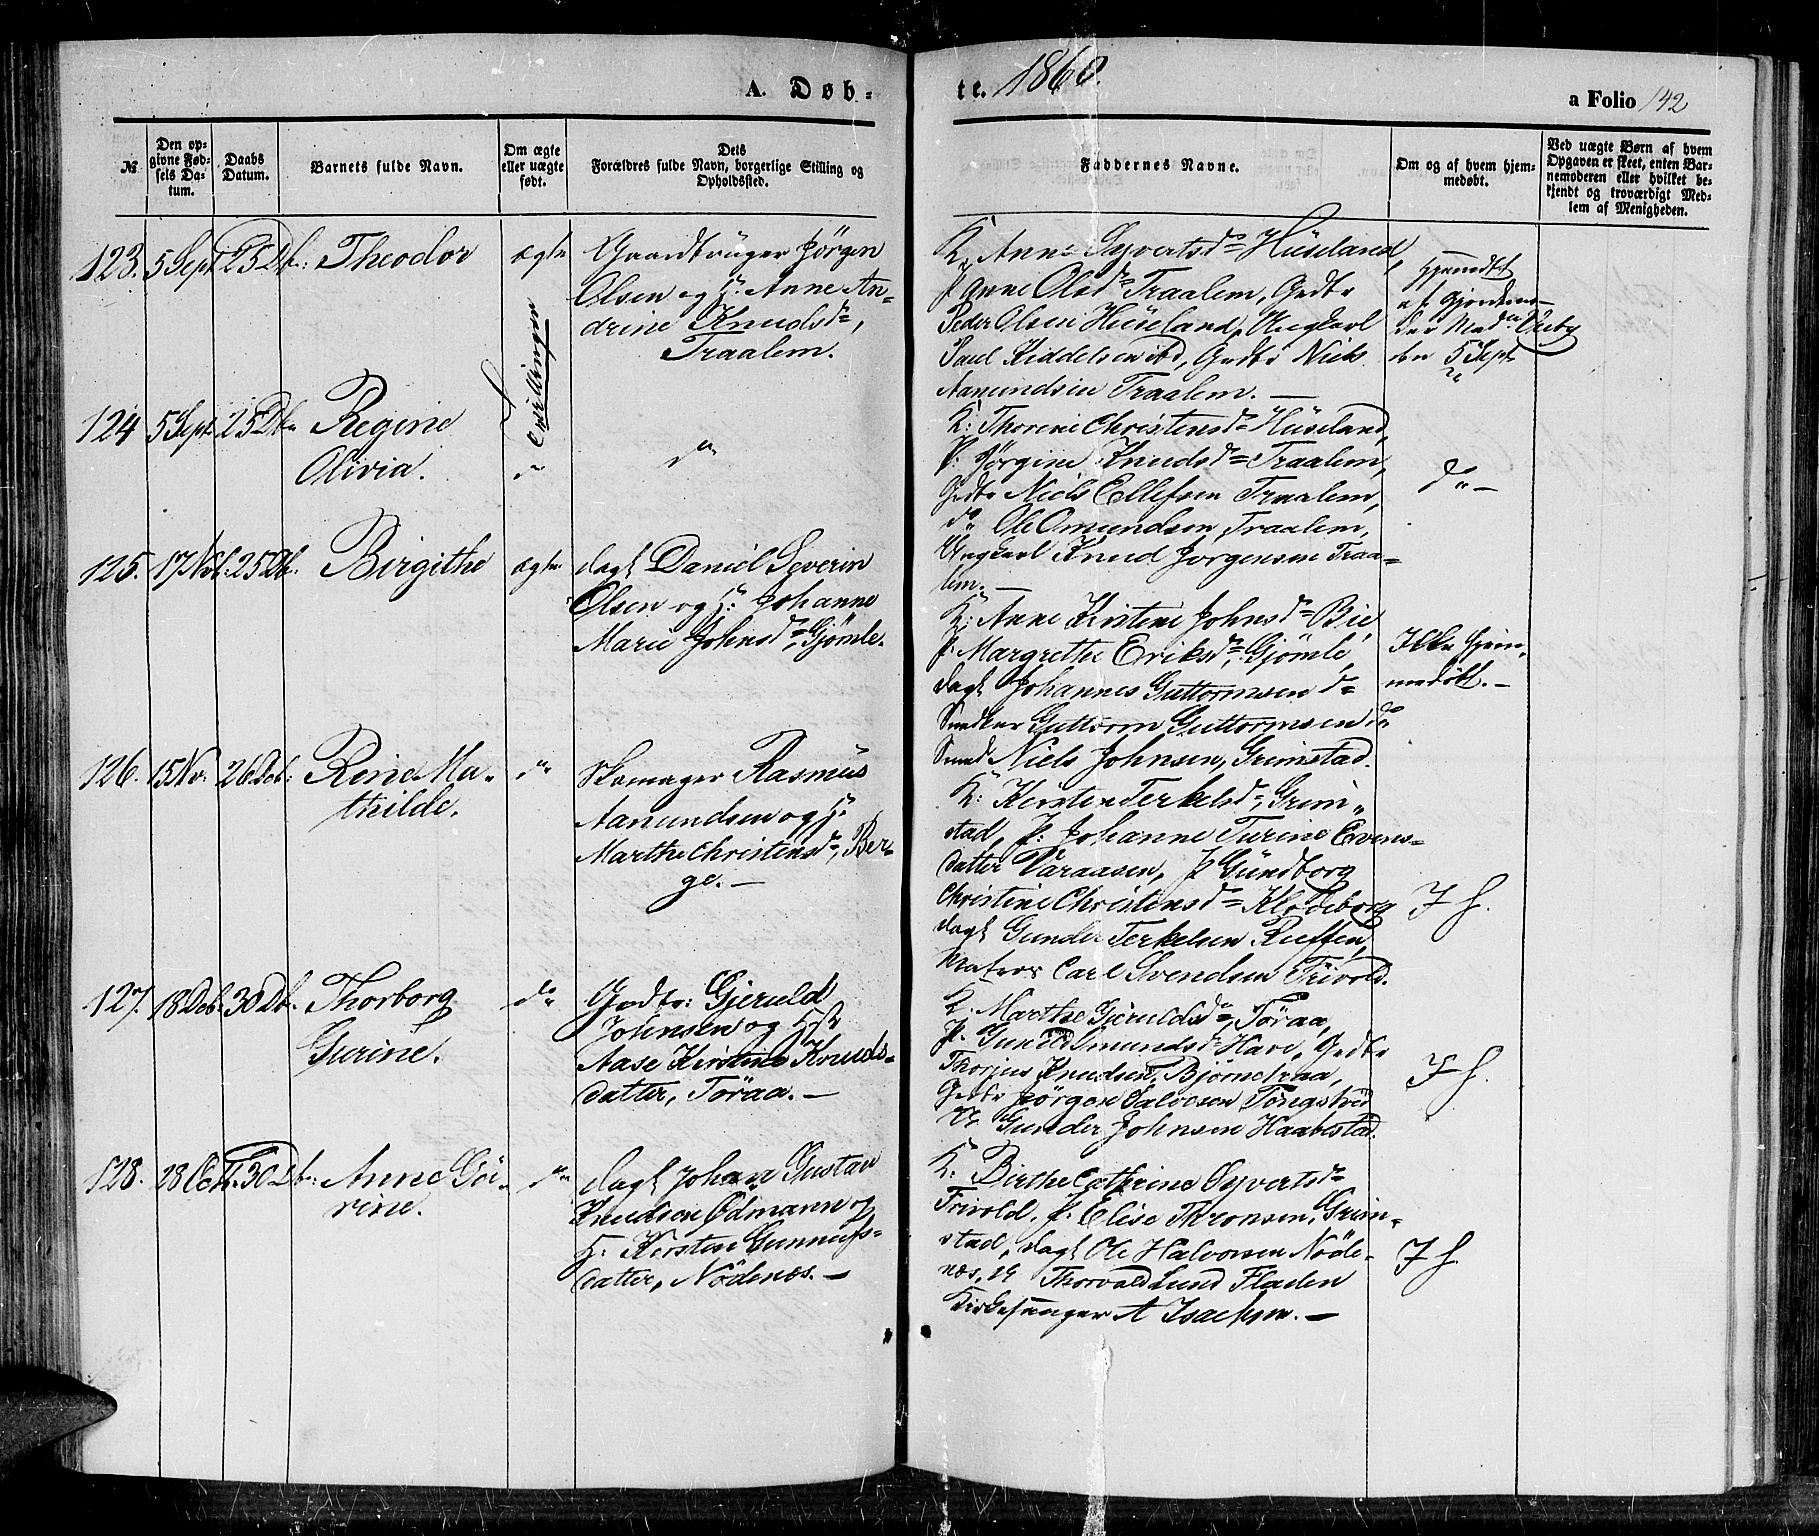 A. Døb-
te. 1860.
a Folio 142
№
Den op-
givne Fød-
sels Da-
tum.
Daabs
Datum.
Barnets fulde Navn.
Om ægte
eller uægte
født.
Dets
Forældres fulde Navn, borgerlige Stilling og
Opholdssted.
Faddernes Navne.
Om og af hvem hjem-
medøbt.
Ved uægte Børn af hvem
Opgaven er skeet, enten Bar-
nemoderen eller hvilket be-
kjendt og troværdigt Med-
lem af Menigheden.
123. 5 Sept 25 Db: Theodor ægte
Gaardbruger Jørgen
Olsen og H: Anne An-
drine Knudsdr,
Traalem.
K. Anne Syvertsdr Hüseland,
P. Anne Olsdr Traalem, Grdbr
Peder Olsen Hüseland, Ungkarl
Paul Kiddelsen ibd, Grdbr Niels
Aamundsen Traalem. —
Hjemdbt
af Gjordemo-
der Mad.
den 5 Sept
Tvillinger
124 5 Sept. 25 Db. Regine
Olivia.
do
K: Thorine Christensdr Hüseland,
P: Jørgine Knudsdr Traalem,
Grdbr Niels Ellefsen Traalem,
do Ole Omundsen, Traalem,
Ungkarl Knud Jørgensen Traa-
lem. —
do —
125. 17 Nvb. 25 Db. Birgithe ægte
dagl Daniel Severin
Olsen og H: Johanne
Marie Johnsdr, Gjömle.
K: Anne Kirstine Johnsdr Bie
P. Margrethe Eriksdr, Gjömle,
dagl Johannes Guttormsen do
Snedker Guttorm Guttormsen do
Smed Niels Johnsen, Grimstad.
Ikke hjem-
medøbt. —
126. 15 Nv. 26 Deb: Rine Ma-
thilde. do
Skomager Rasmus
Aanundsen og H:
Marthe Christensdr, Ber-
ge. —
K: Kirsten Terkelsdr, Grim-
stad, P. Johanne Turine Evens-
datter Varaasen, P Gündborg
Christine Christensdr Klodeborg
dagl Gunder Terkelsen
Matros Carl Svendsen Frivold.
I H.
127. 18 Deb. 30 Db. Thorborg
Gurine. do
Grdbr: Gjeruld
Johnsen og Hst
Aase Kirstine Knuds-
datter, Töraa. —
K. Marthe Gjeruldsdr, Töraa,
P. Gunild Omundsdr Have, Grdbr
Thorjus Knudsen, Bjornetraa,
Grdbr Jörgen Salvesen
Gunder Johnsen Haabestad.
I H.
128. 28 Oct. 30 Db: Anne Gü-
rine. do
dagl Johan Gustav
Knudsen Ödmann og
H. Kirsten Gunnufs-
datter, Nödenæs. —
K. Birthe Cathrine Syvertsdr
Frivold, P. Elise Thronsen, Grim-
stad, dagl Ole Halvorsen Nöde-
næs, Thorvald Lund Fladen
Kirkesanger A Isachsen. —
I H.